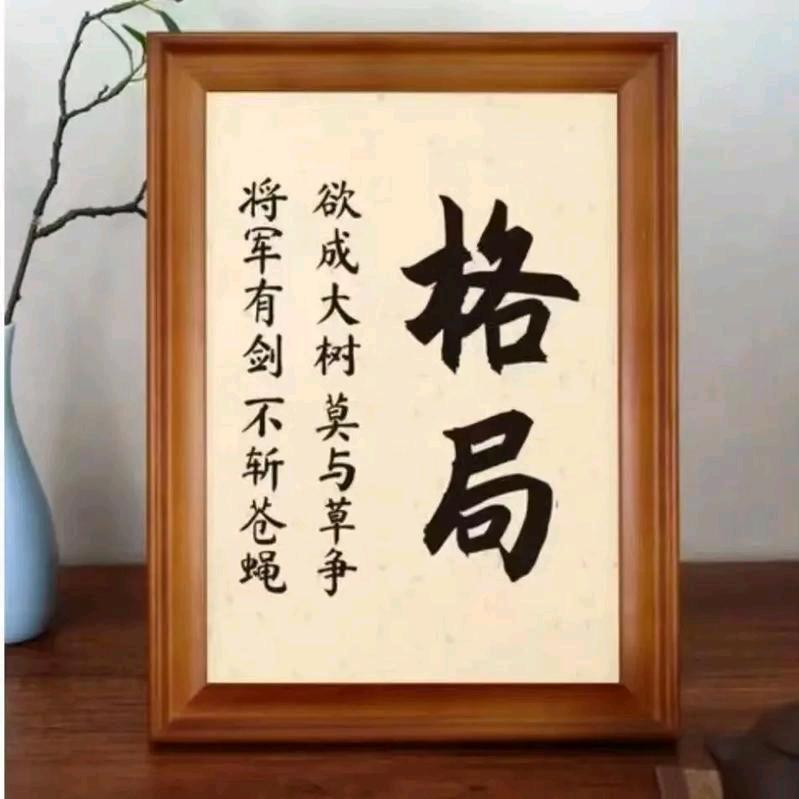 格局
欲成大树莫与草争
将军有剑不斩苍蝇